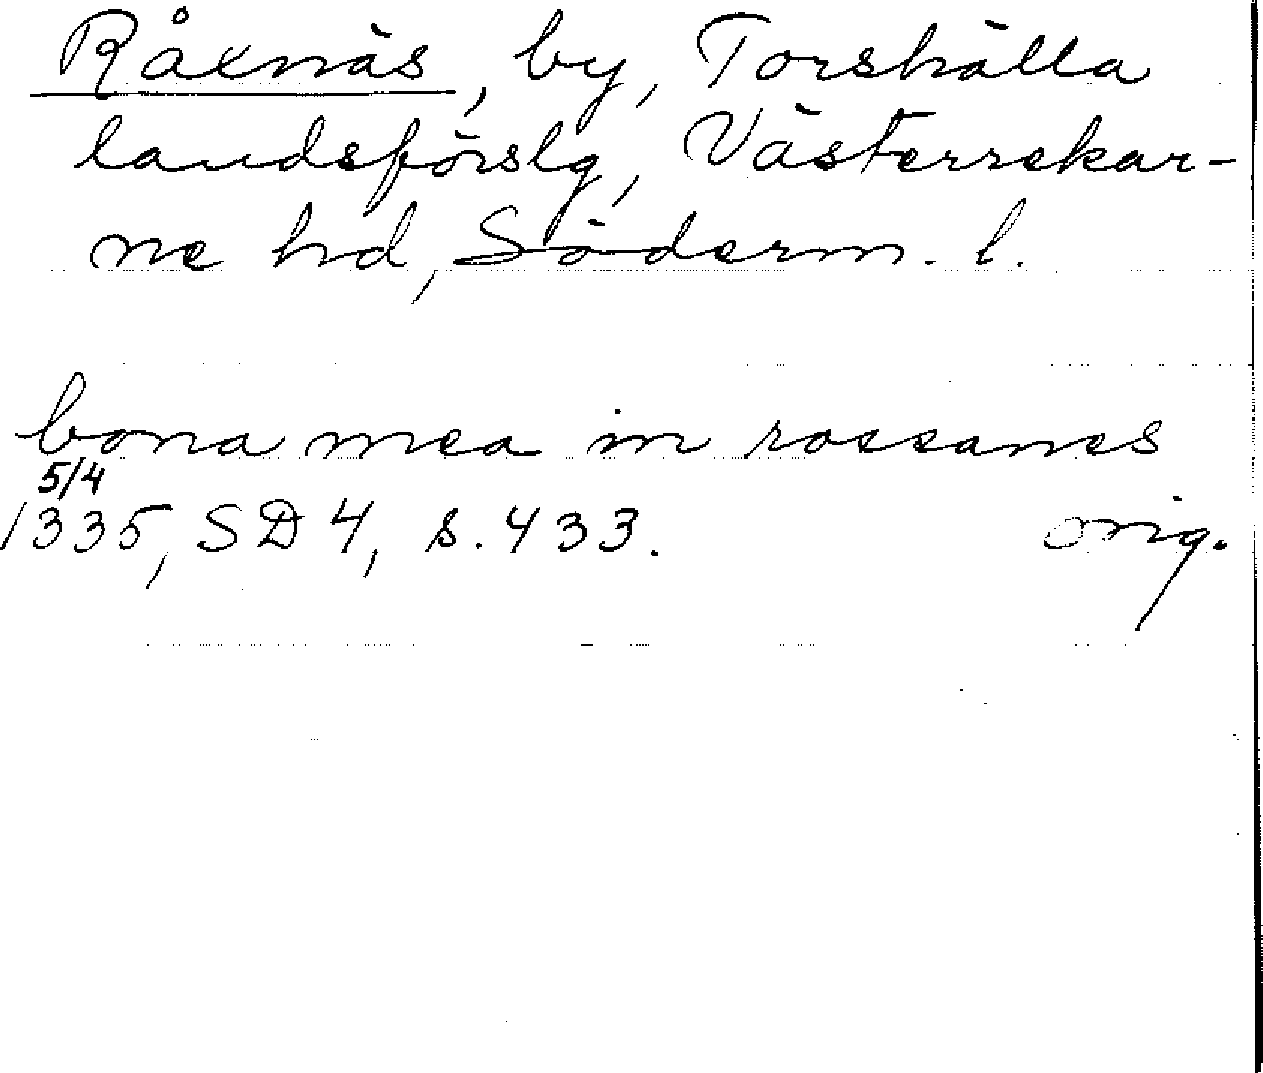 Råxnäs, by, Torshälla
landsförslg, Västerrekar-
ne hd, Söderm. l.
bona mea in rossanes
5/4
1335, SD 4, s. 433. orig.